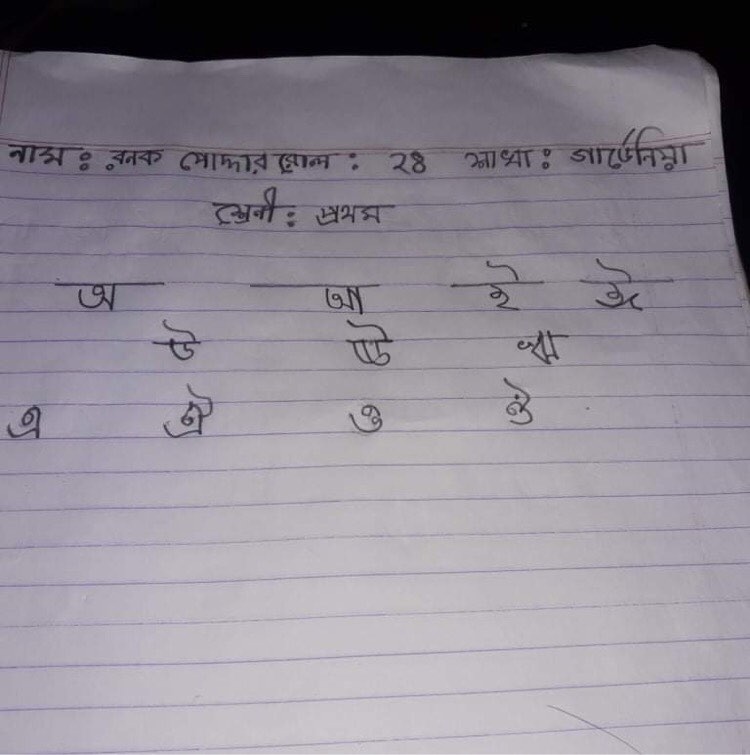 নাম : রনক পোদ্দার রোল : ২৪ শাখা : গার্ডেনিয়া
শ্রেনী : প্রথম
অ আ ই ঈ
উ ঊ ঋ
এ ঐ ও ঔ